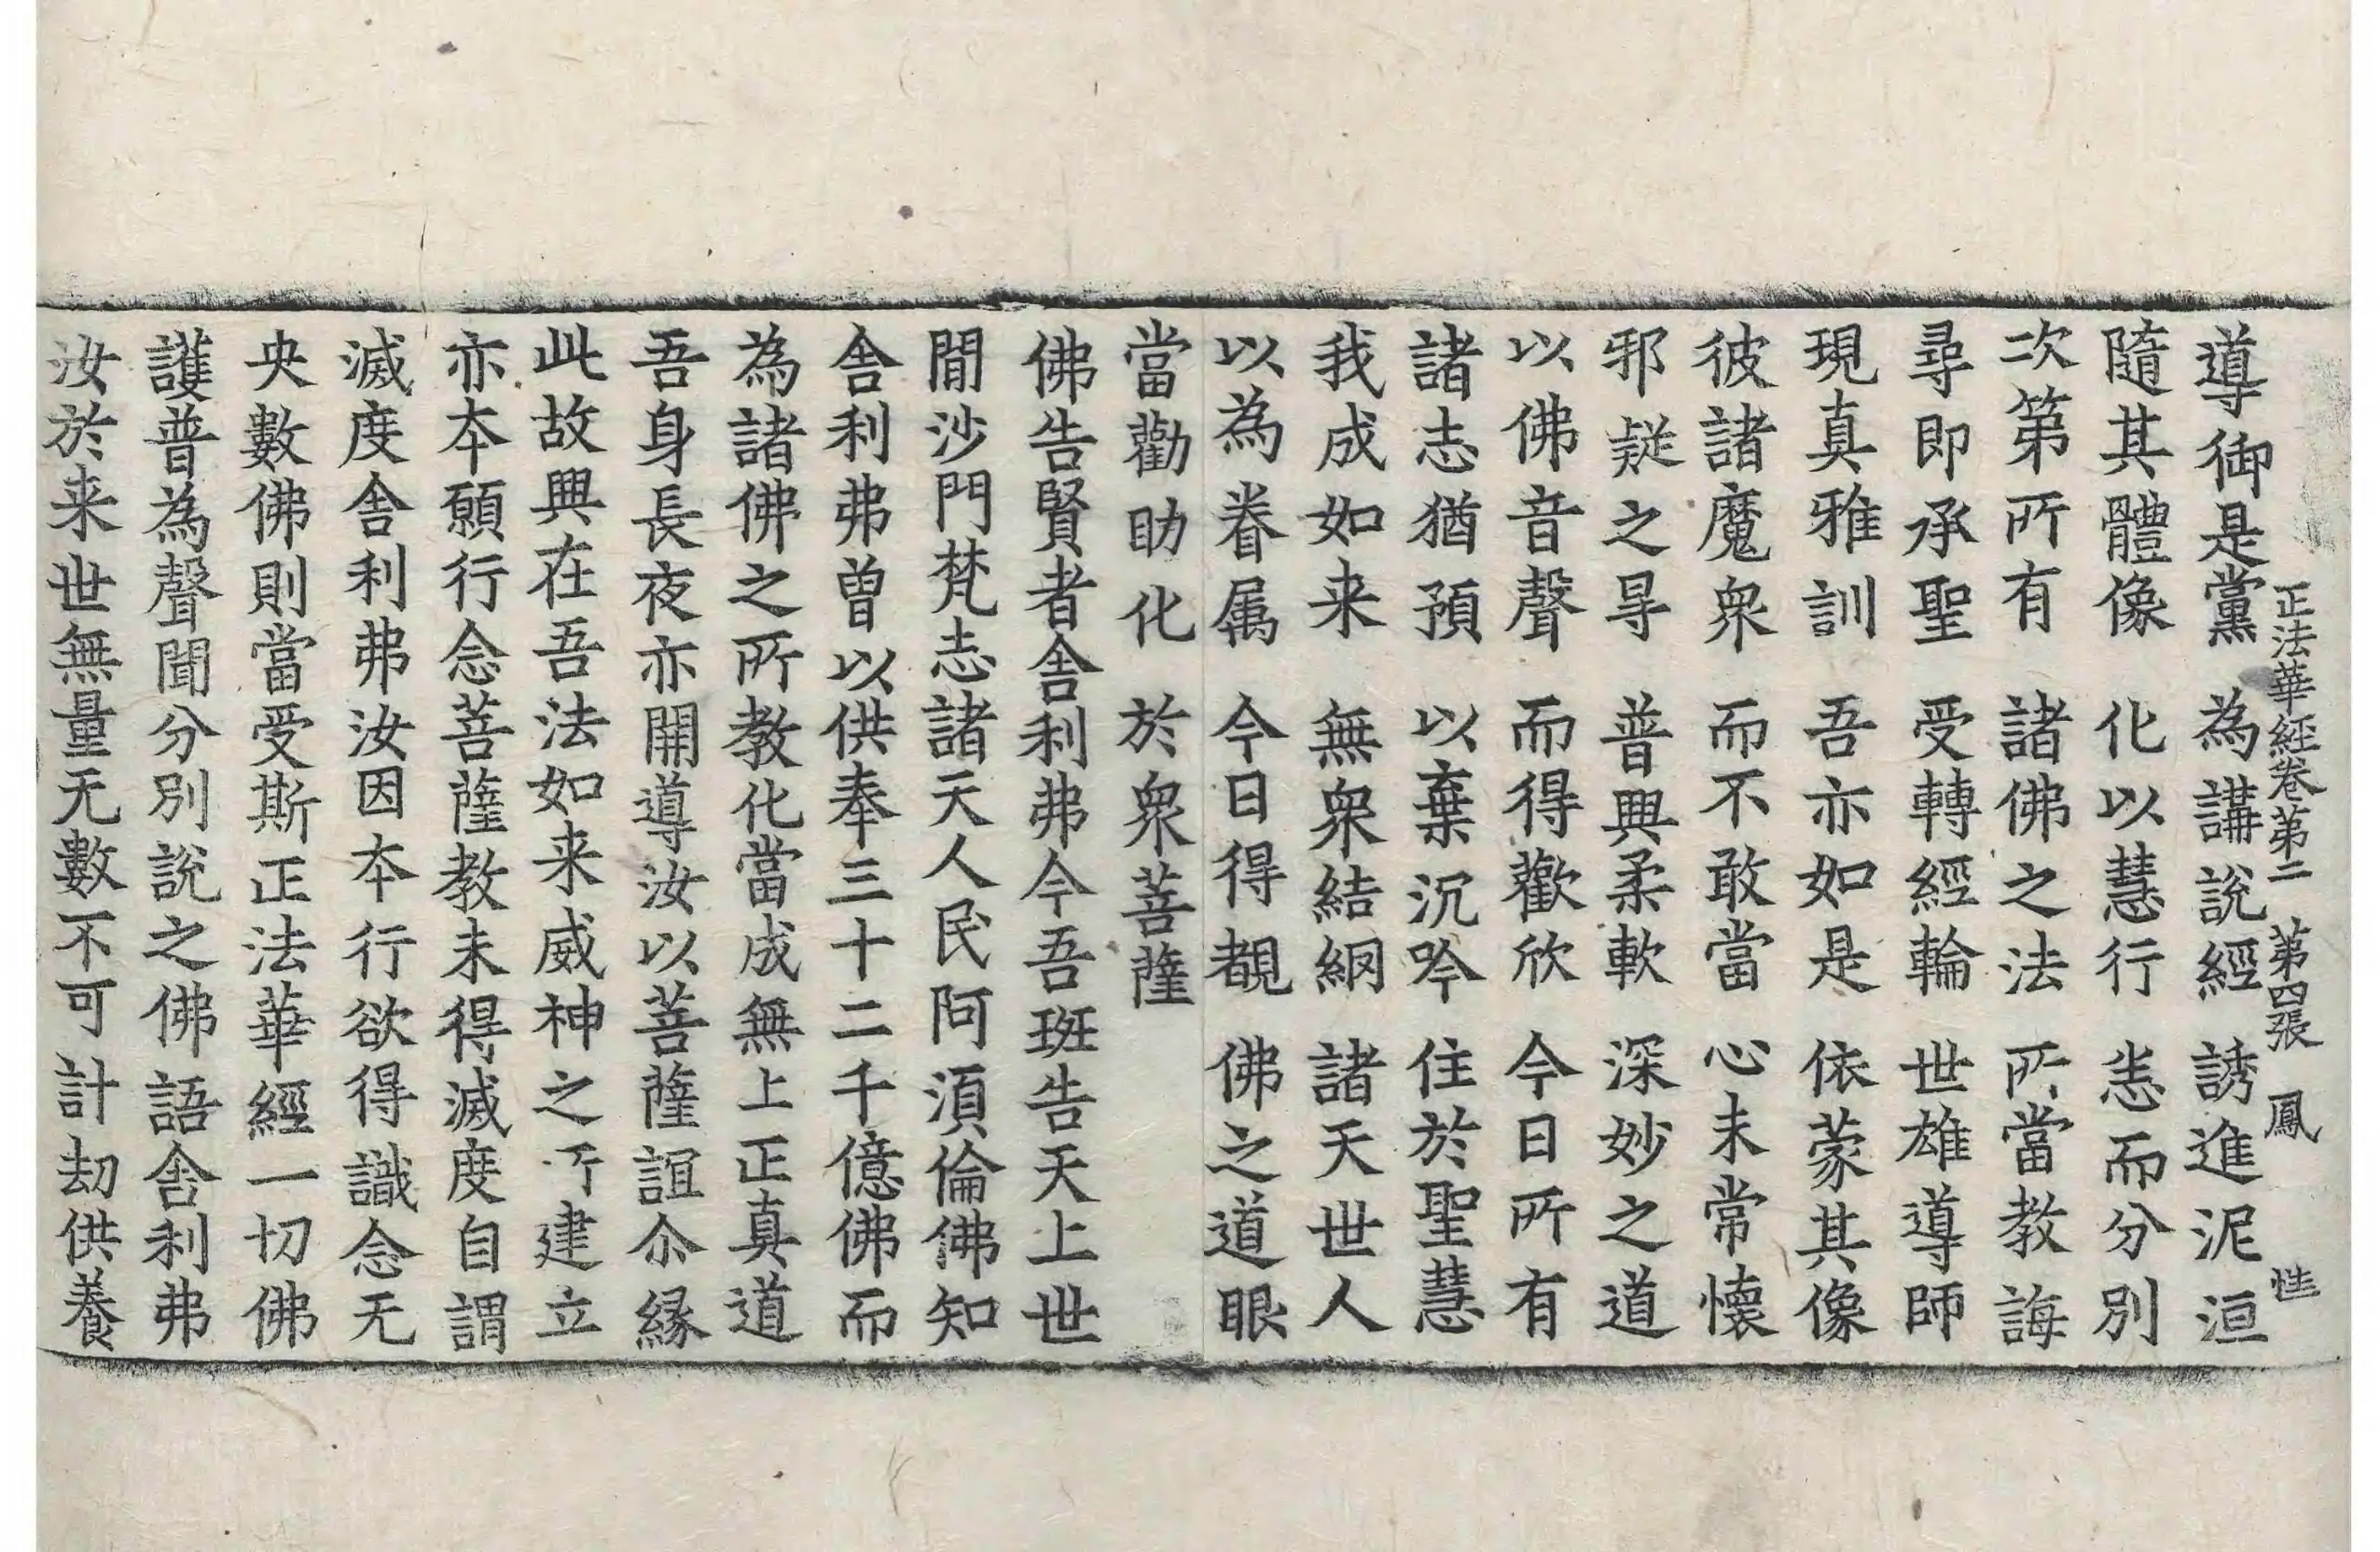 正法華經卷第二 第四張 鳳
導御是黨 為講說經 誘進泥洹
隨其體像 化以慧行 恙而分別
次第所有 諸佛之法 所當教誨
尋即承聖 受轉經輪 世雄導師
現真雅訓 吾亦如是 依蒙其像
彼諸魔衆 而不敢當 心未常懷
邪疑之㝵 普興柔軟 深妙之道
以佛音聲 而得歡欣 今日所有
諸志猶預 以棄沉吟 住於聖慧
我成如来 無衆結網 諸天世人
以為眷属 今日得覩 佛之道眼
當勸助化 於衆菩薩
佛告賢者舍利弗今吾班告天上世
間沙門梵志諸天人民阿湏倫佛知
舍利弗曽以供奉三十二千億佛而
為諸佛之所教化當成無上正真道
吾身長夜亦開導汝以菩薩誼尒縁
此故興在吾法如来威神之所建立
亦本願行念菩薩教未得滅度自謂
滅度舍利弗汝因本行欲得識念无
央數佛則當受斯正法華經一切佛
護普為聲聞分別說之佛語舍利弗
汝於来世無量无數不可計劫供養